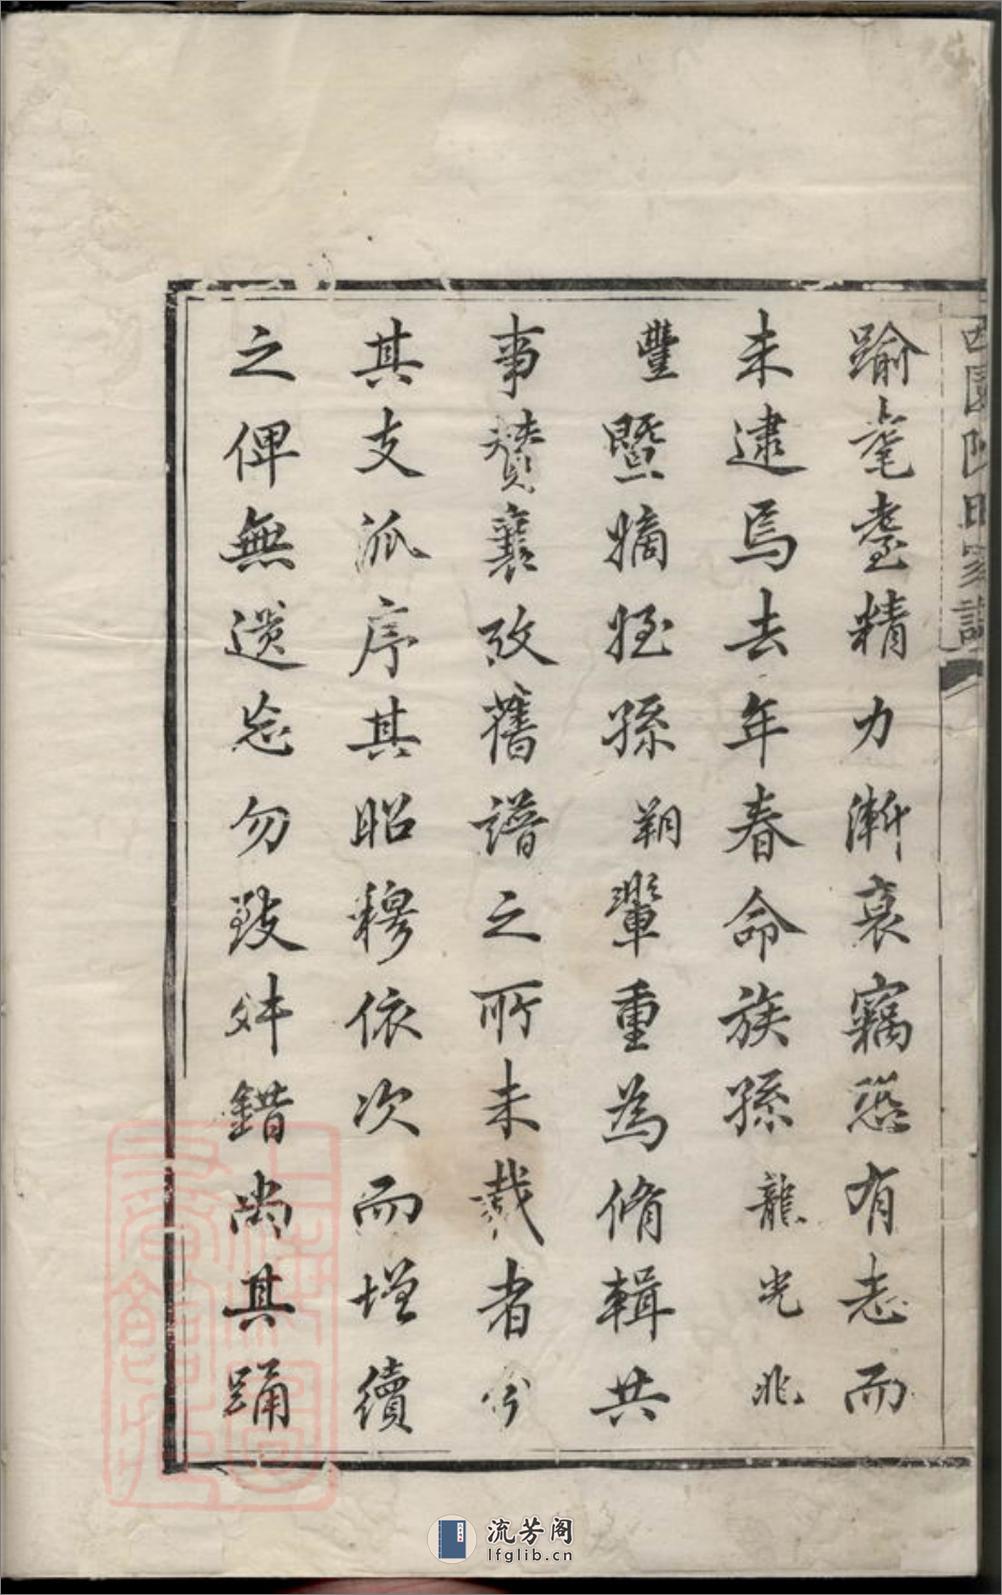 踰耄耋精力漸衰竊恐有志而
未逮焉去年春命族孫龍光兆
豐暨嫡姪孫朔輩重為脩輯共
事贊襄攷舊譜之所未載者分
其支派序其昭穆依次而增續
之俾無遺忘勿致舛錯尚其踊
流芳阁
lfglib.cn